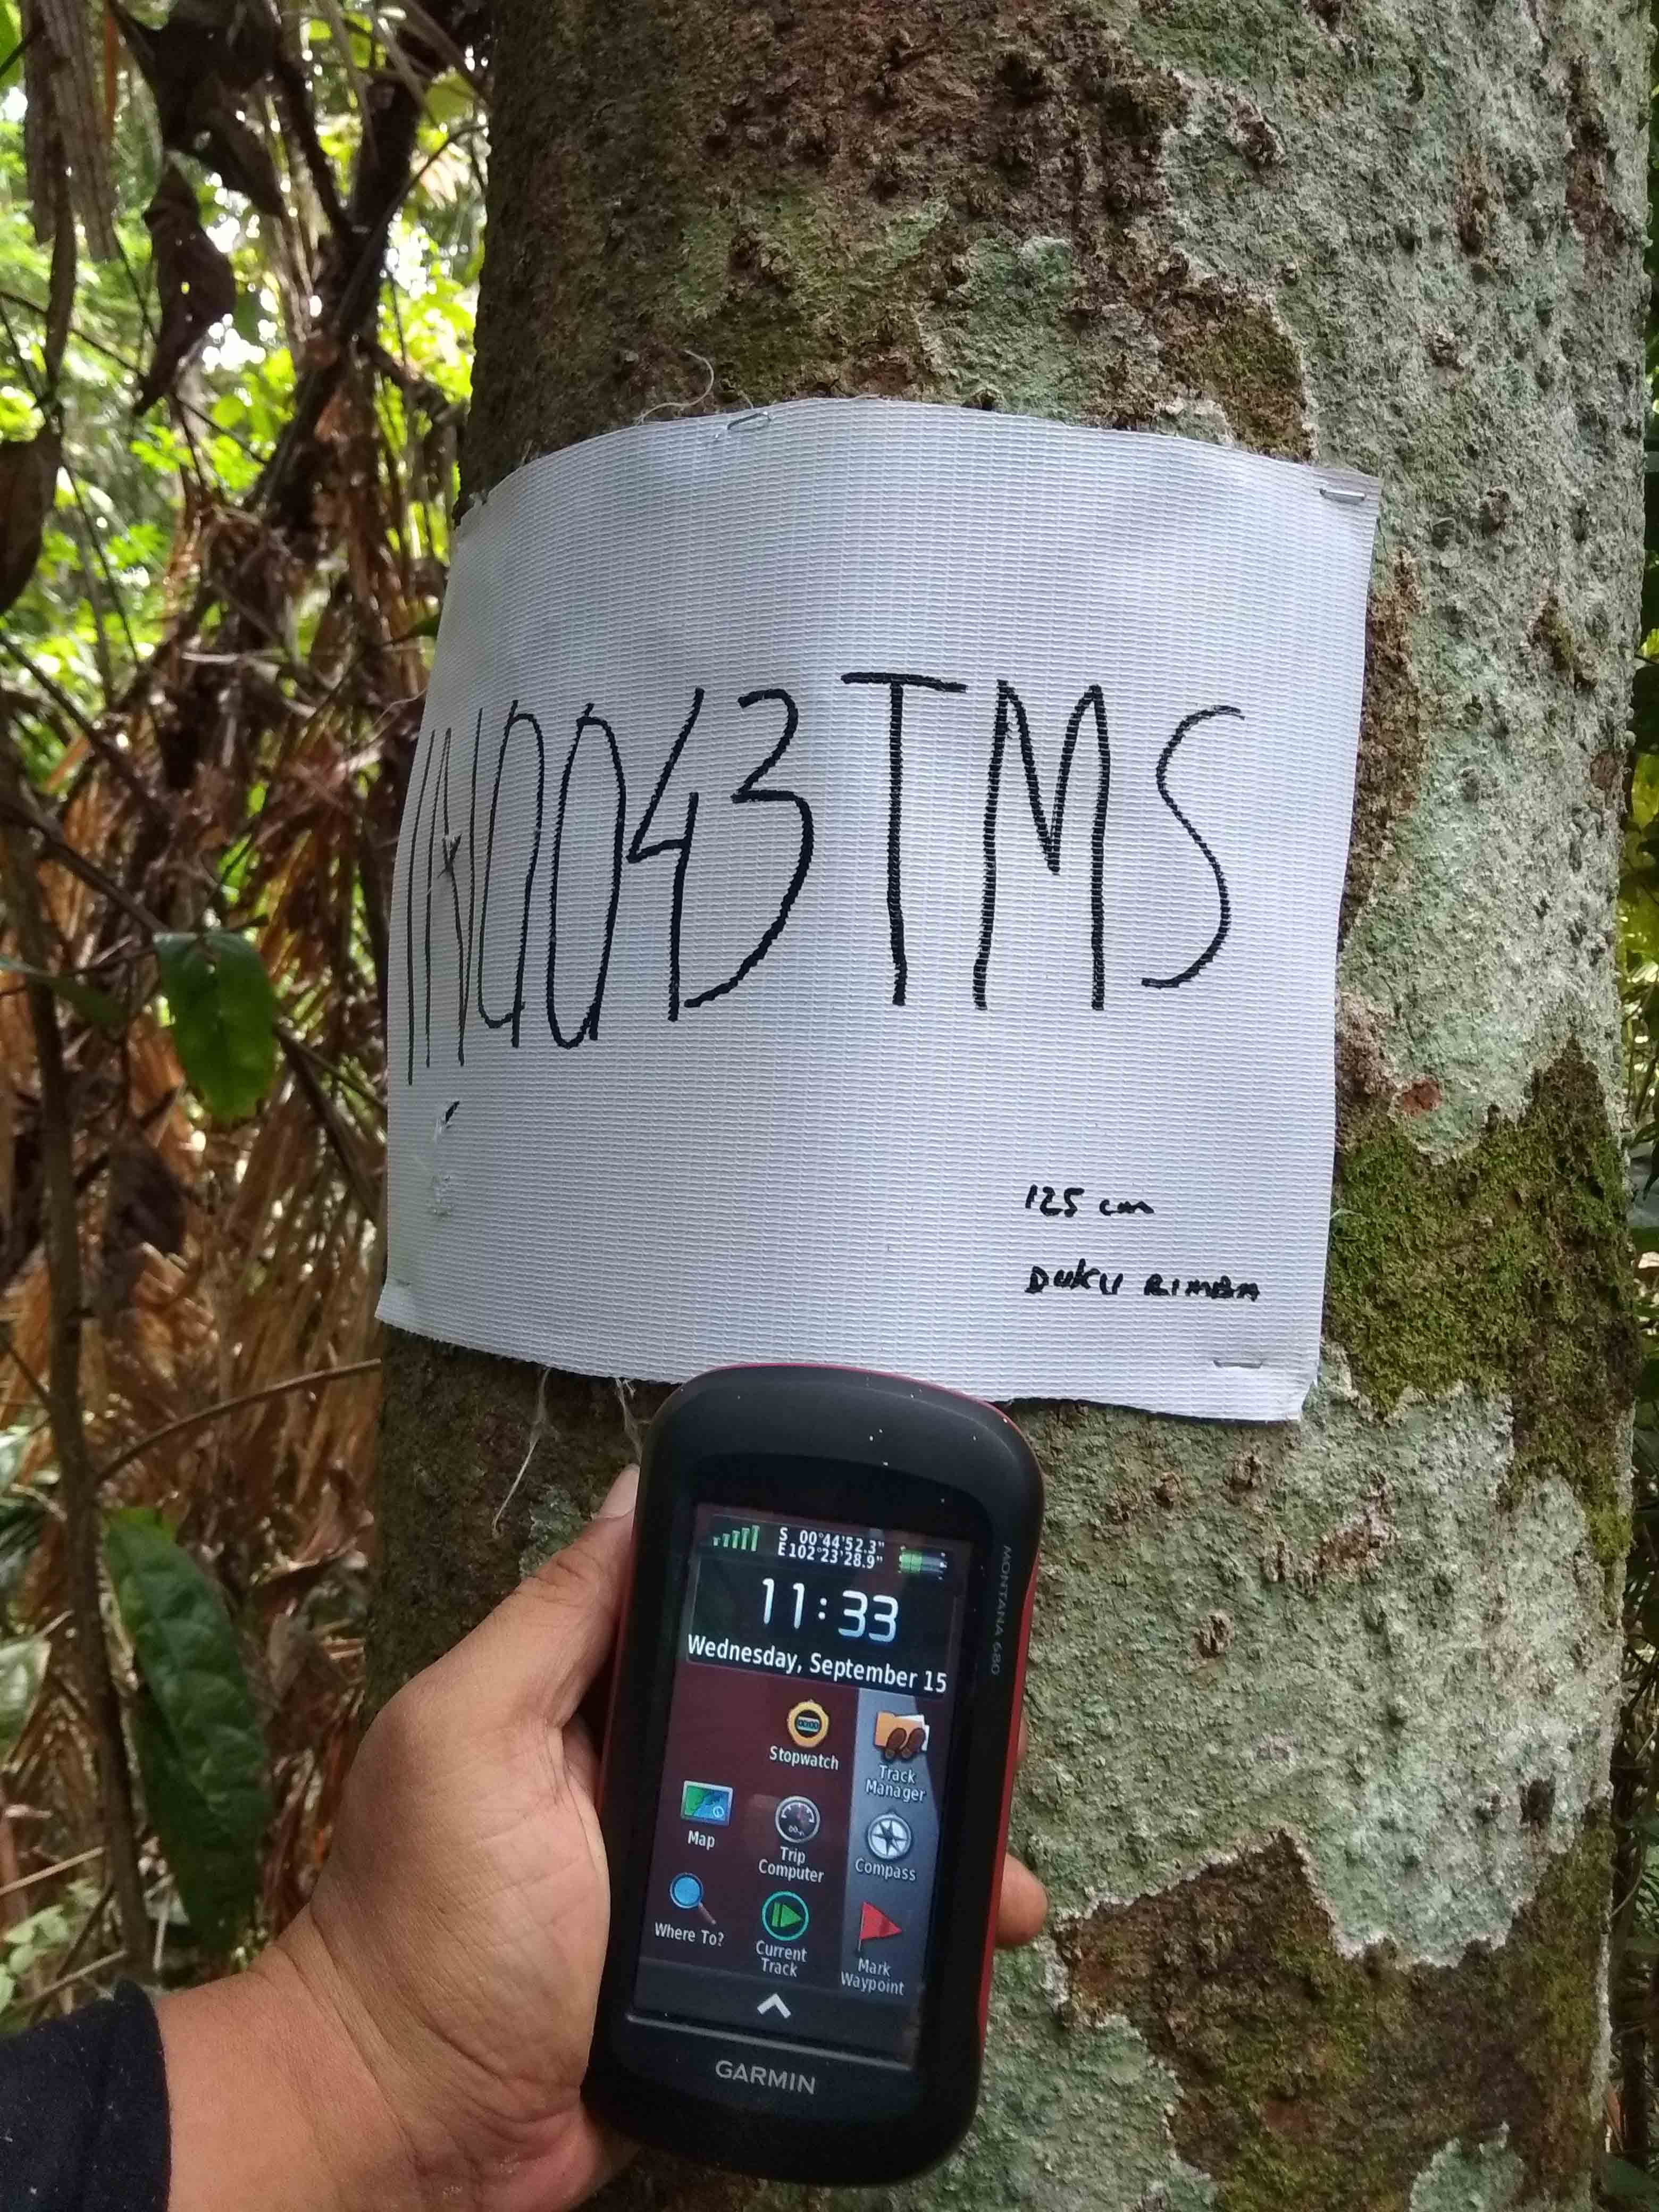 IN0043TMS
125 cm
DUKU RIMBA
S 00°44'52.3"
E102°23'28.9"
11:33
Wednesday, September 15
Stopwatch
Track
Manager
Map
Trip
Computer
Compass
Where To?
Current
Track
Mark
Waypoint
GARMIN
MONTANA 680